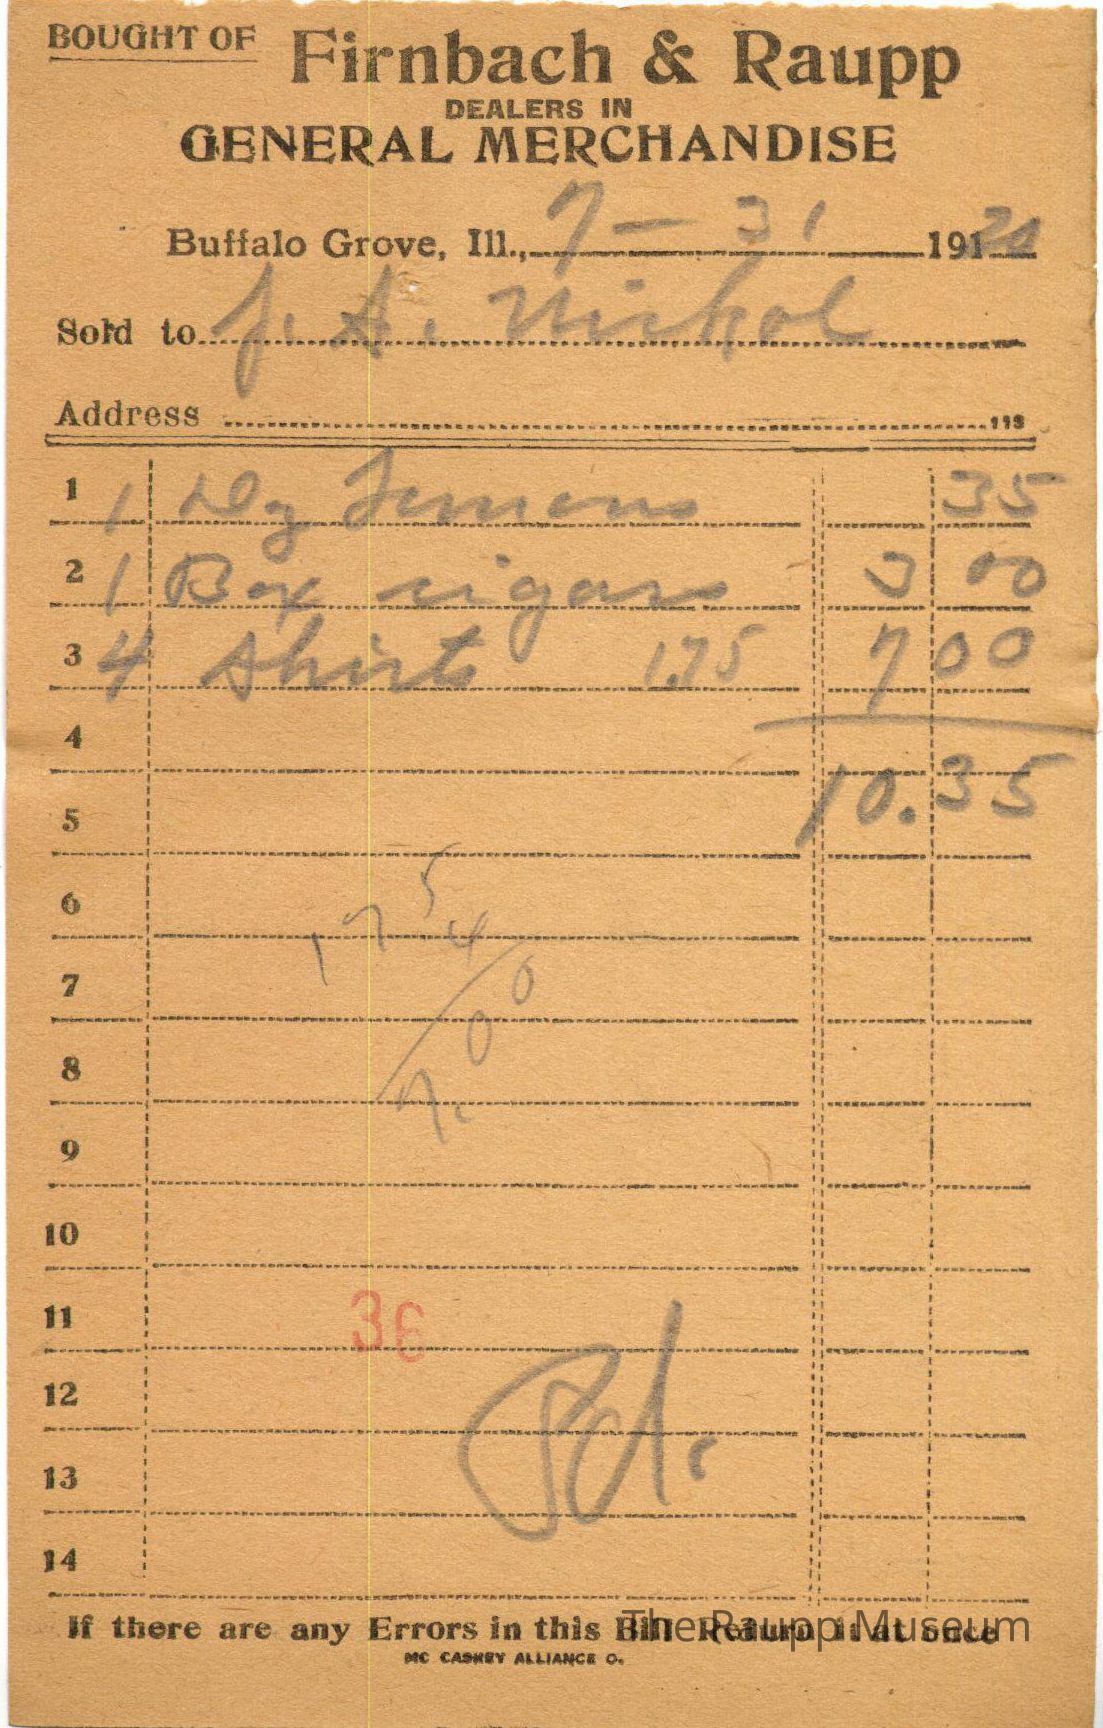 BOUGHT OF Firnbach & Raupp
DEALERS IN
GENERAL MERCHANDISE
Buffalo Grove, Ill., 7 - 31 191 20
Sold to J. A. Nichol
Address 113
1 1 Dz Lemons 35
2 1 Box cigars 3 00
3 4 Shirts 1.75 7 00
4
5 10.35
6 175
4
7 7.00
8
9
10
11 36
12
13 Pd.
14
If there are any Errors in this Bill Return it at once
The Raupp Museum
MC CASKEY ALLIANCE O.